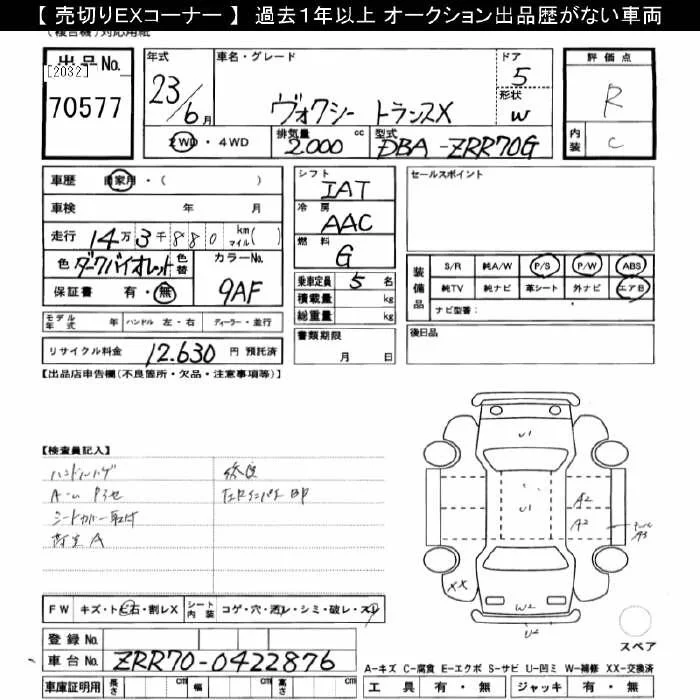 【 売切りEXコーナー 】 過去1年以上 オークション出品歴がない車両
(複合機)対応用紙
出品No.
[2032]
70577
年式 23/6月
車名・グレード ヴォクシー トランスX
ドア 5
形状 W
評価点 R
内装 C
2WD・4WD
排気量 2,000 cc
型式 DBA-ZRR70G
車歴 自家用・( )
車検 年 月
走行 14万3千880 km マイル( )
色 ダークバイオレット 色替
カラーNo. 9AF
保証書 有・無
シフト IAT
冷房 AAC
燃料 G
乗車定員 5名
積載量 kg
総重量 kg
書類期限
月 日
セールスポイント
装備品
S/R 純A/W P/S P/W ABS
純TV 純ナビ 革シート 外ナビ エアB
ナビ型番:
後日品
モデル年式 年 ハンドル 左・右 ディーラー・並行
リサイクル料金 12,630 円 預託済
【出品店申告欄(不良箇所・欠品・注意事項等)】
【検査員記入】
シートカバー取付
U1
U1
A2
A2
A3
XX
W2
U2
FW キズ・トビ石・割レX
シート内装 コゲ・穴・汚レ・シミ・破レ・スレ
登録No.
車台No. ZRR70-0422876
車庫証明用 長さ cm 幅 cm 高さ cm
スペア
A-キズ C-腐食 E-エクボ S-サビ U-凹ミ W-補修 XX-交換済
工具 有・無 ジャッキ 有・無